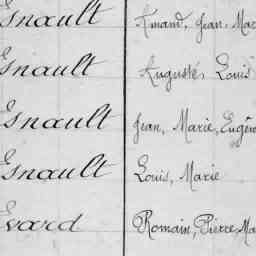 Esnault Amand, Jean, Mar
Esnault Auguste, Louis
Esnault Jean, Marie, Eugên
Esnault Louis, Marie
Evard Romain, Pierre, Ma